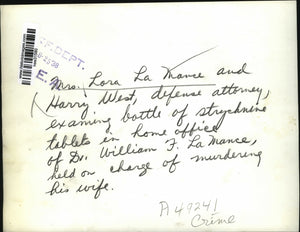 REF. DEPT.
E. 
Mrs. Lora La Mance and
Harry West, defense attorney,
examing bottle of strychnine
tablets in home office
of Dr. William F. La Mance,
held on charge of murdering
his wife.
A49241
Crime